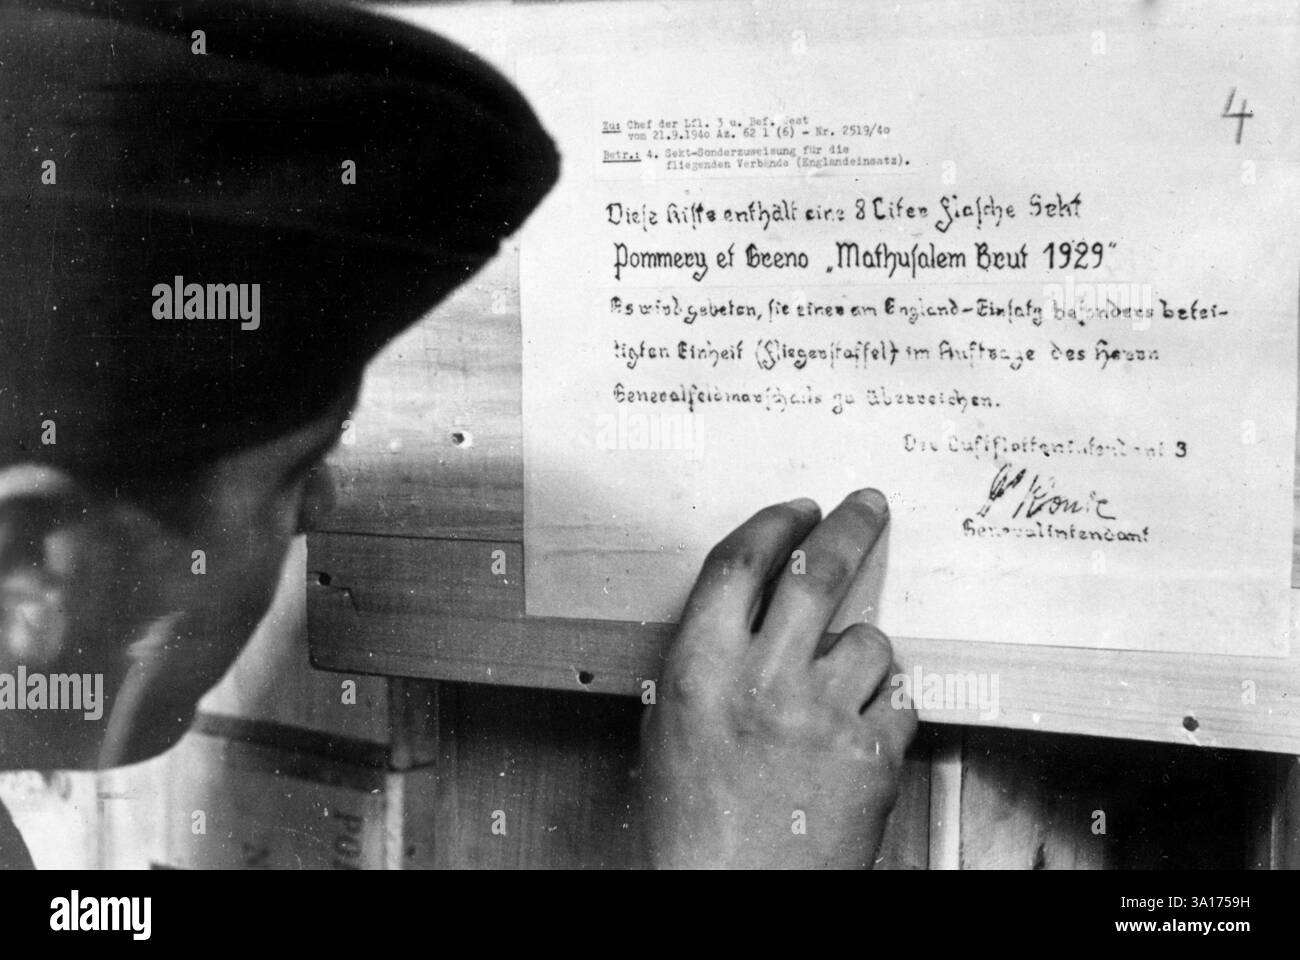 4
Zu: Chef der Lfl. 3 u. Bef. West
vom 21.9.1940 Az. 62 i (6) - Nr. 2519/40
Betr.: 4. Sekt-Sonderzuweisung für die
fliegenden Verbände (Englandeinsatz).
Diese Kiste enthält eine 8 Liter Flasche Sekt
Pommery et Greno „Mathusalem Brut 1929"
Es wird gebeten, sie einer am England-Einsatz besonders betei-
ligten Einheit (Fliegerstaffel) im Auftrage des Herrn
Generalfeldmarschalls zu überreichen.
Der Luftflottenintendant 3
Generalintendant
alamy
Image ID: 3A1759H
www.alamy.com